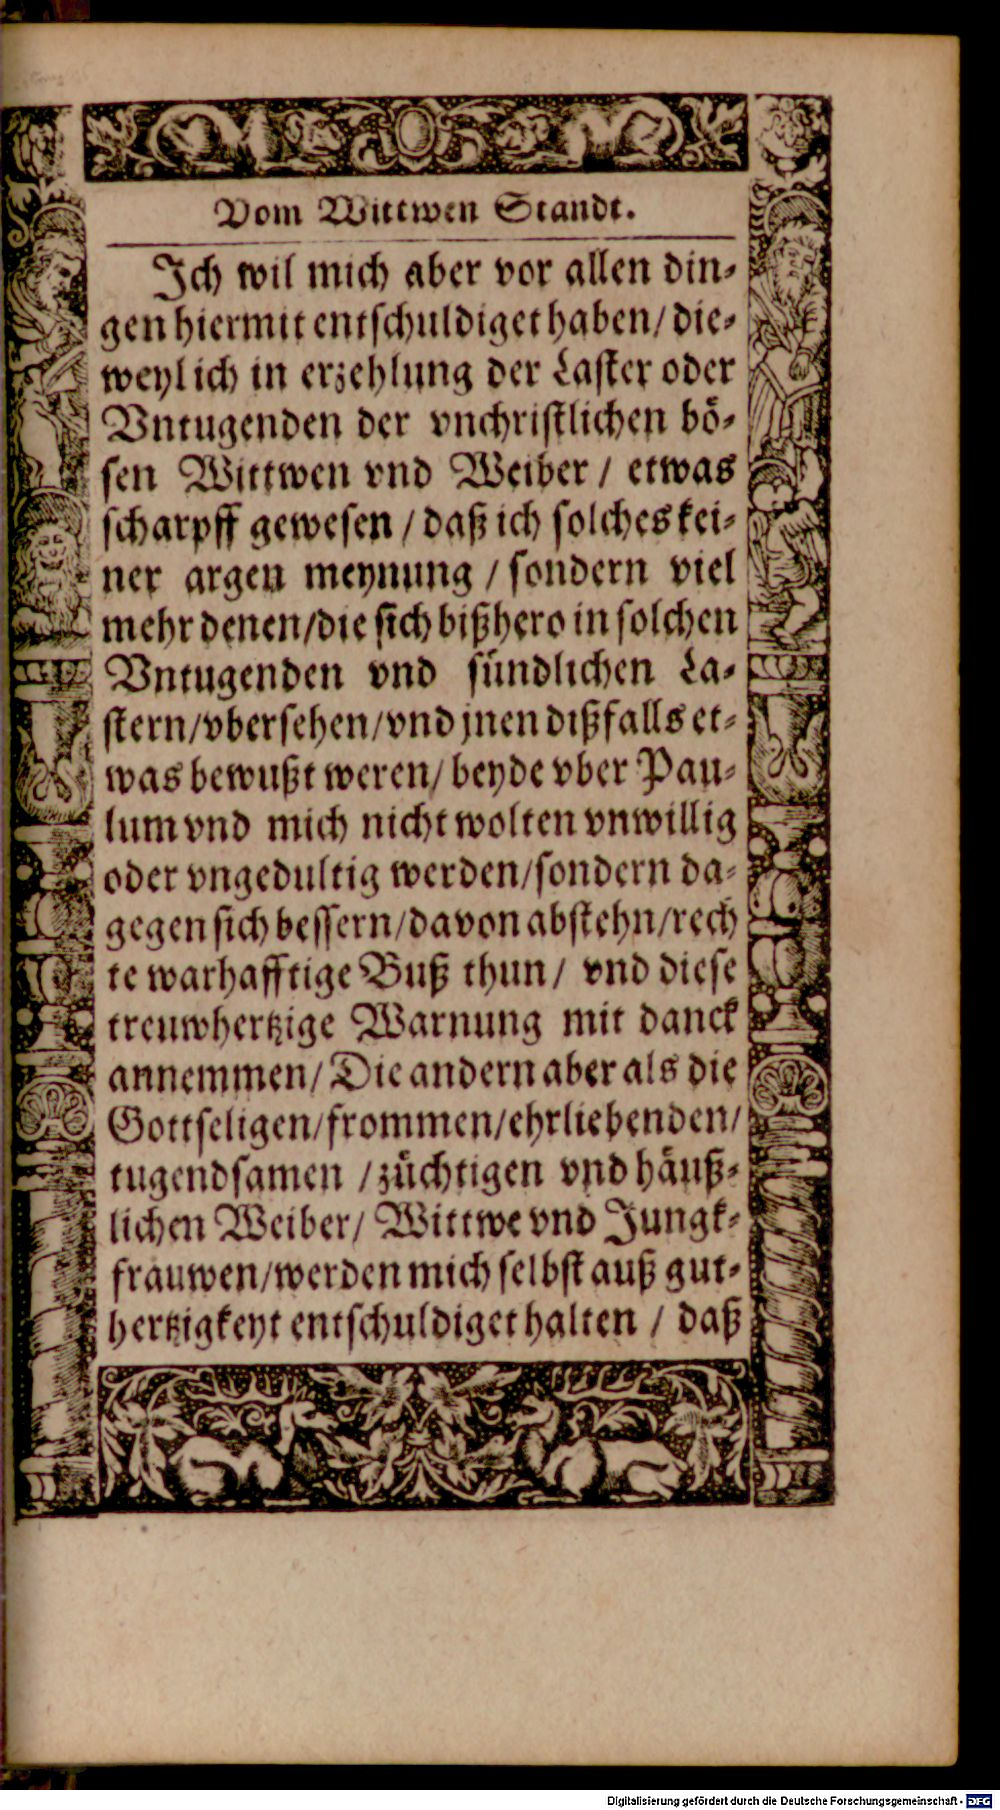 Vom Wittwen Standt.
Ich wil mich aber vor allen din⸗
gen hiermit entschuldiget haben/ die⸗
weyl ich in erzehlung der Laster oder
Vntugenden der vnchristlichen bö⸗
sen Wittwen vnd Weiber / etwas
scharpff gewesen / daß ich solches kei⸗
ner argen meynung / sondern viel
mehr denen/die sich bißhero in solchen
Vntugenden vnd sündlichen La⸗
stern/vbersehen/vnd jnen dißfalls et⸗
was bewußt weren/ beyde vber Pau⸗
lum vnd mich nicht wolten vnwillig
oder vngedultig werden/sondern da⸗
gegen sich bessern/davon abstehn/rech
te warhafftige Buß thun/ vnd diese
treuwhertzige Warnung mit danck
annemmen/ Die andern aber als die
Gottseligen/frommen/ehrliebenden/
tugendsamen /züchtigen vnd häuß⸗
lichen Weiber/ Wittwe vnd Jungk⸗
frauwen/werden mich selbst auß gut⸗
hertzigkeyt entschuldiget halten / daß
Digitalisierung gefördert durch die Deutsche Forschungsgemeinschaft - DFG